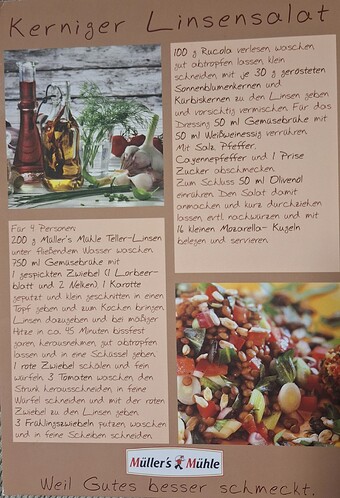 Kerniger Linsensalat
Für 4 Personen:
200 g Müller's Mühle Teller-Linsen
unter fließendem Wasser waschen.
750 ml Gemüsebrühe mit
1 gespickten Zwiebel (1 Lorbeer-
blatt und 2 Nelken), 1 Karotte
geputzt und klein geschnitten in einen
Topf geben und zum Kochen bringen.
Linsen dazugeben und bei mäßiger
Hitze in ca. 45 Minuten bissfest
garen, herausnehmen, gut abtropfen
lassen und in eine Schüssel geben.
1 rote Zwiebel schälen und fein
würfeln. 3 Tomaten waschen, den
Strunk herausschneiden, in feine
Würfel schneiden und mit der roten
Zwiebel zu den Linsen geben.
3 Frühlingszwiebeln putzen, waschen
und in feine Scheiben schneiden.
100 g Rucola verlesen, waschen,
gut abtropfen lassen, klein
schneiden, mit je 30 g gerösteten
Sonnenblumenkernen und
Kürbiskernen zu den Linsen geben
und vorsichtig vermischen. Für das
Dressing 50 ml Gemüsebrühe mit
50 ml Weißweinessig verrühren.
Mit Salz, Pfeffer,
Cayennepfeffer und 1 Prise
Zucker abschmecken.
Zum Schluss 50 ml Olivenöl
einrühren. Den Salat damit
anmachen und kurz durchziehen
lassen, evtl. nachwürzen und mit
16 kleinen Mozarella-Kugeln
belegen und servieren.
Müller's Mühle
Weil Gutes besser schmeckt.